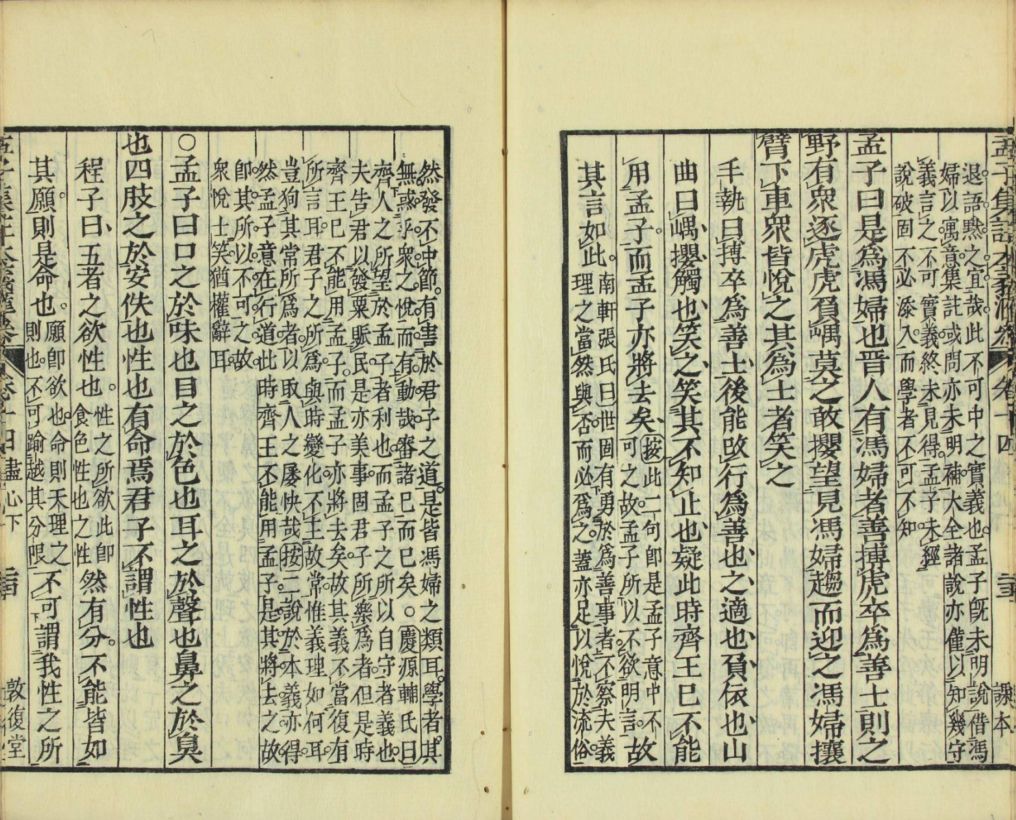 孟子集註本義滙叅 卷十四 課本
退語黙之宜哉此不可中之實義也孟子旣未明說借馮
婦以寓意集註或問亦未明補大全諸說亦僅以知幾守
義言之不可實義終未見得孟子未經
說破固不必添入而學者不可不知
孟子曰是為馮婦也晉人有馮婦者善搏虎卒為善士則之
野有衆逐虎虎負嵎莫之敢攖望見馮婦趨而迎之馮婦攘
臂下車衆皆悅之其為士者笑之
手執曰搏卒為善士後能改行為善也之適也負依也山
曲曰嵎攖觸也笑之笑其不知止也疑此時齊王已不能
用孟子而孟子亦將去矣按此二句卽是孟子意中不可之故孟子所以不欲明言故
其言如此南軒張氏曰世固有勇於為善事者不察夫義理之當然與否而必為之蓋亦足以悅於流俗
然發不中節有害於君子之道是皆馮婦之類耳學者其
無惑乎衆之悅而有動哉審諸已而已矣○慶源輔氏曰
齊人之所望於孟子者利也而孟子之所以自守者義也
夫告君以發粟賑民是亦美事固君子所樂為者但是時
齊王已不能用孟子而孟子亦將去矣故其義不當復有
所言耳君子之所為與時變化不主故常惟義理如何耳
豈狥其常所為者以取人之屢快哉按二說於本義亦得
然孟子意在行道此時齊王不能用孟子是其將去之故
卽其所以不可之故
衆悅士笑猶權辭耳
○孟子曰口之於味也目之於色也耳之於聲也鼻之於臭
也四肢之於安佚也性也有命焉君子不謂性也
程子曰五者之欲性也性之所欲此卽食色性也之性然有分不能皆如
其願則是命也願卽欲也命則天理之則也不可踰越其分限不可謂我性之所
盡心下 敦復堂